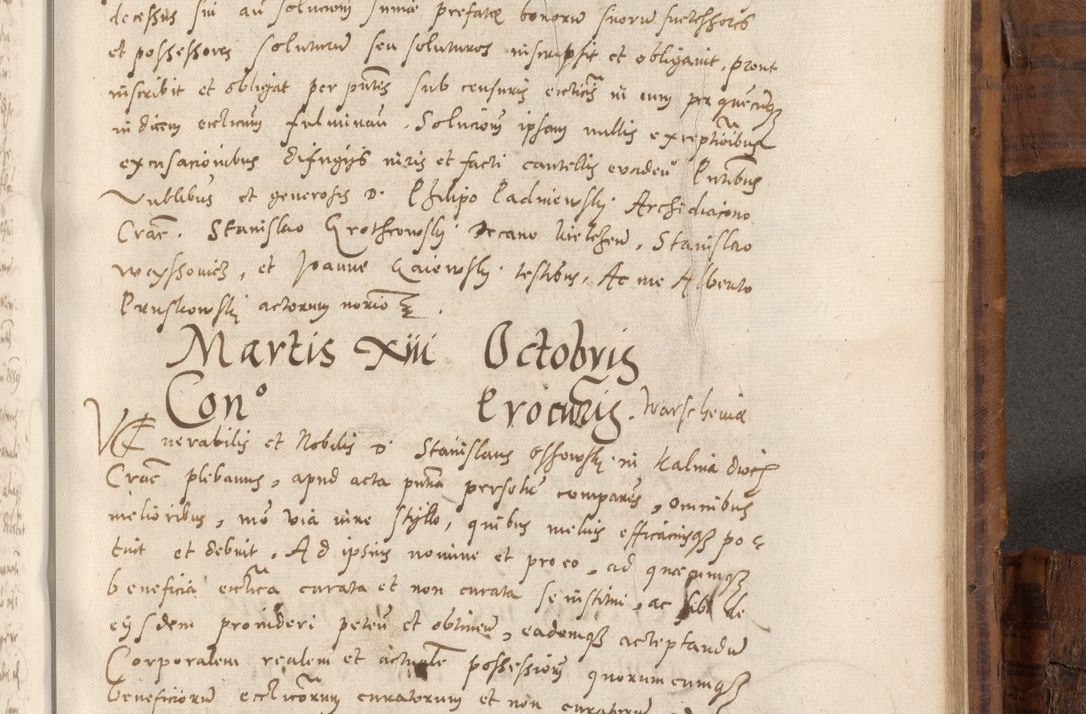 decessus sui an solucioni summe prefate bonorum suorum successores
et possessores soluturum seu soluturos inscripsit et obligavit, prout
inscribit et obligat per pntes sub censuris ecclicis in eum per quecunq
iudicem ecclicum fulminan. Solucioni ipsam nullis exceptionibus
excusacionibus diffugiis iuris et facti cautellis evaden. Pntibus
Nobilibus et generosis D. Philipo Padniewsky Archidiacono
Cracn. Stanislao Grothcowsky Decano Kielczen, Stanislao
Woyssowicz, et Joanne Gaiowsky testibus, Ac me Alberto
Pruskowsky actorum norio.
Martis XIII Octobris
Con° Procuris. Warschewia
Venerabilis et Nobilis D. Stanislaus Ossowsky in Kalina dioc
Cracn plebanus, apud acta pntia persolr comparens, omnibus
melioribus, mo via iure stillo, quibus melius efficaciusq po
tuit et debuit. Ad ipsius nomine et pro eo, ad quecunq
beneficia ecclica curata et non curata se institui, ac sibi de
eisdem provideri peten et obtinen, eademq acceptandum
Corporalem realem et actualem possessioni quorumcumq
beneficiorum ecclicorum curatorum et non curatorum